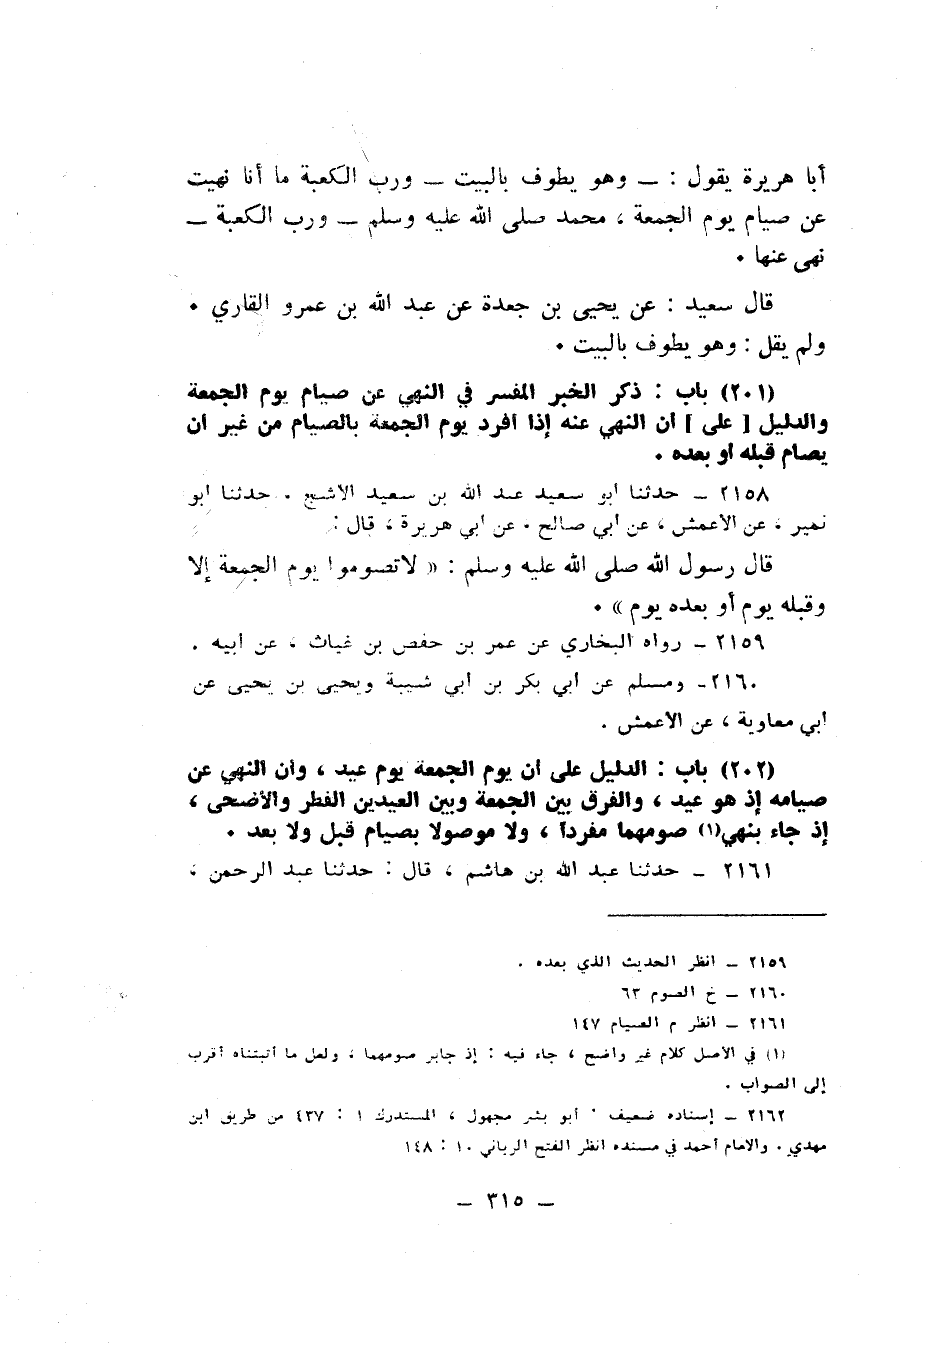 أبا هريرة يقول : ــ وهو يطوف بالبيت ــ ورب الكعبة ما أنا نهيت
عن صيام يوم الجمعة ، محمد صلى الله عليه وسلم ــ ورب الكعبة ــ
نهى عنها .
قال سعيد : عن يحيى بن جعدة عن عبد الله بن عمرو القاري .
ولم يقل : وهو يطوف بالبيت .
(٢٠١) باب : ذكر الخبر المفسر في النهي عن صيام يوم الجمعة
والدليل [ على ] أن النهي عنه إذا أفرد يوم الجمعة بالصيام من غير أن
يصام قبله أو بعده .
٢١٥٨ ــ حدثنا أبو سعيد عبد الله بن سعيد الاشج . حدثنا ابو
نمير ، عن الاعمش ، عن أبي صالح . عن أبي هريرة ، قال :
قال رسول الله صلى الله عليه وسلم : « لاتصوموا يوم الجمعة إلا
وقبله يوم أو بعده يوم » .
٢١٥٩ ــ رواه البخاري عن عمر بن حفص بن غياث ، عن أبيه .
٢١٦٠ــ ومسلم عن أبي بكر بن أبي شيبة ويحيى بن يحيى عن
أبي معاوية ، عن الاعمش .
(٢٠٢) باب : الدليل على أن يوم الجمعة يوم عيد ، وأن النهي عن
صيامه إذ هو عيد ، والفرق بين الجمعة وبين العيدين الفطر والأضحى ،
إذ جاء بنهي(١) صومهما مفرداً ، ولا موصولا بصيام قبل ولا بعد .
٢١٦١ ــ حدثنا عبد الله بن هاشم ، قال : حدثنا عبد الرحمن ،
٢١٥٩ ــ انظر الحديث الذي بعده .
٢١٦٠ ــ خ الصوم ٦٣
٢١٦١ ــ انظر م الصيام ١٤٧
(١) في الاصل كلام غير واضح ، جاء فيه : إذ جابر صومهما ، ولعل ما أثبتناه أقرب
إلى الصواب .
٢١٦٢ ــ إسناده ضعيف . أبو بشر مجهول ، المستدرك ١ : ٤٣٧ من طريق ابن
مهدي . والامام أحمد في مسنده انظر الفتح الرباني ١٠ : ١٤٨
ــ ٣١٥ ــ